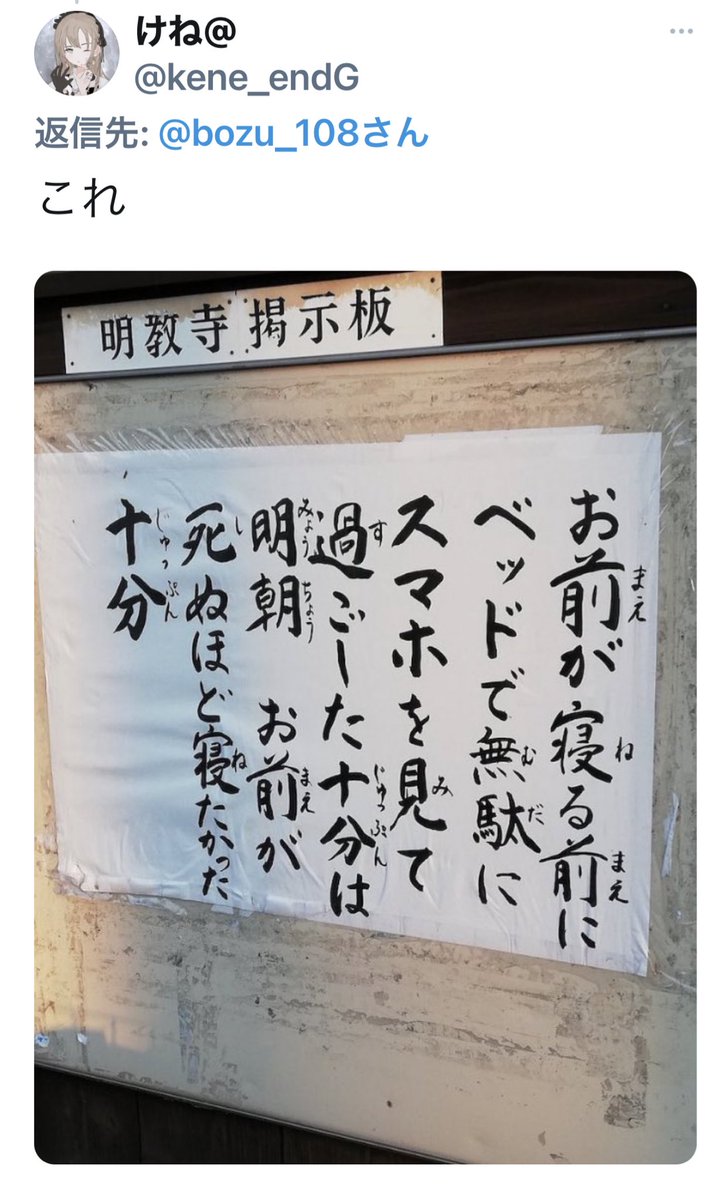 けね@
@kene_endG
返信先: @bozu_108さん
これ
明教寺 掲示板
お前が寝る前に
まえ
ね
まえ
ベッドで無駄に
むだ
スマホを見て
み
過ごした十分は
す
じゅっぷん
明朝 お前が
みょうちょう
まえ
死ぬほど寝たかった
し
ね
十分
じゅっぷん